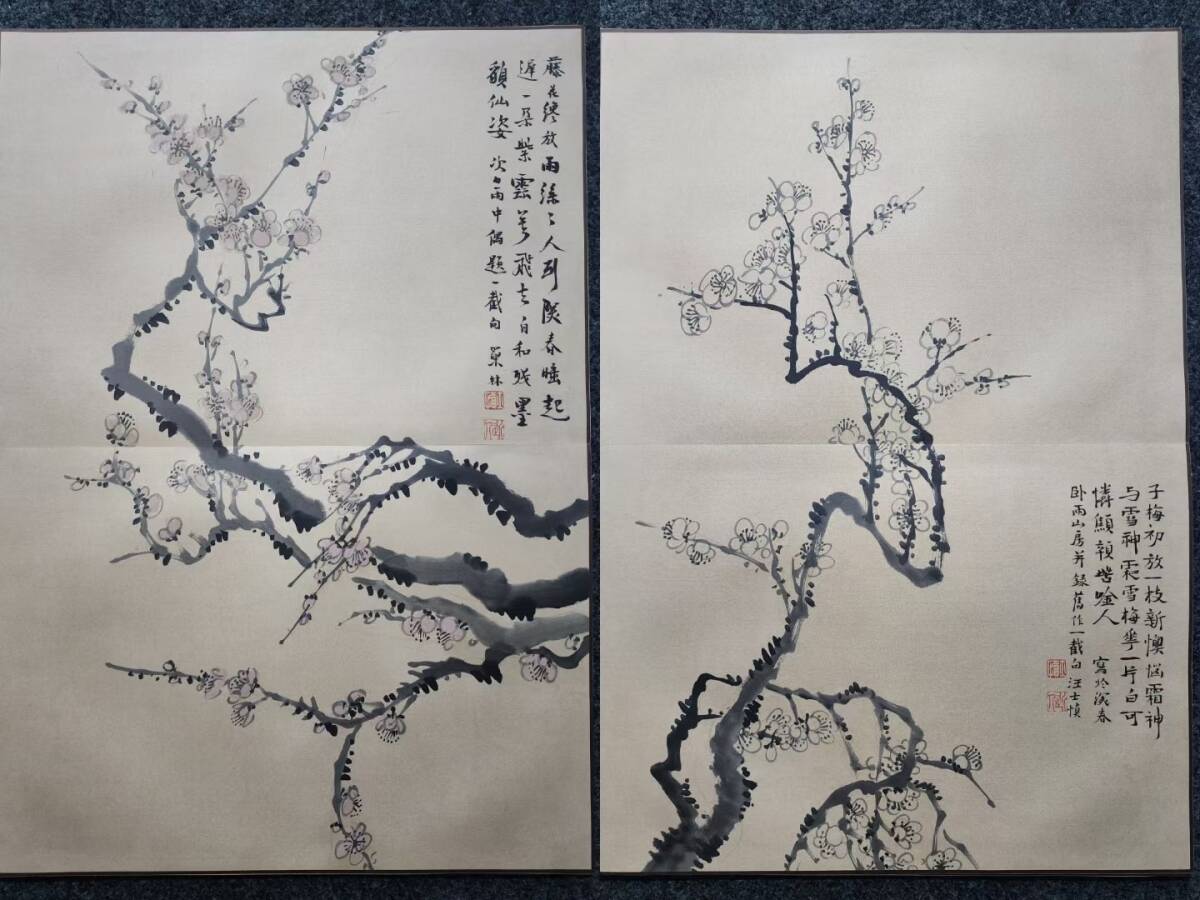 藤花繚放雨絲〻人到関春睡起
遲一朵紫雲若飛去自和殘墨
額仙姿 次白雨中偶題一截句 巢林
子梅初放一枝新懊惱霜神
与雪神霜雪梅華一片白可
憐顛親皆唫人 寫於浅春
卧雨山房并録舊作一截句汪士慎